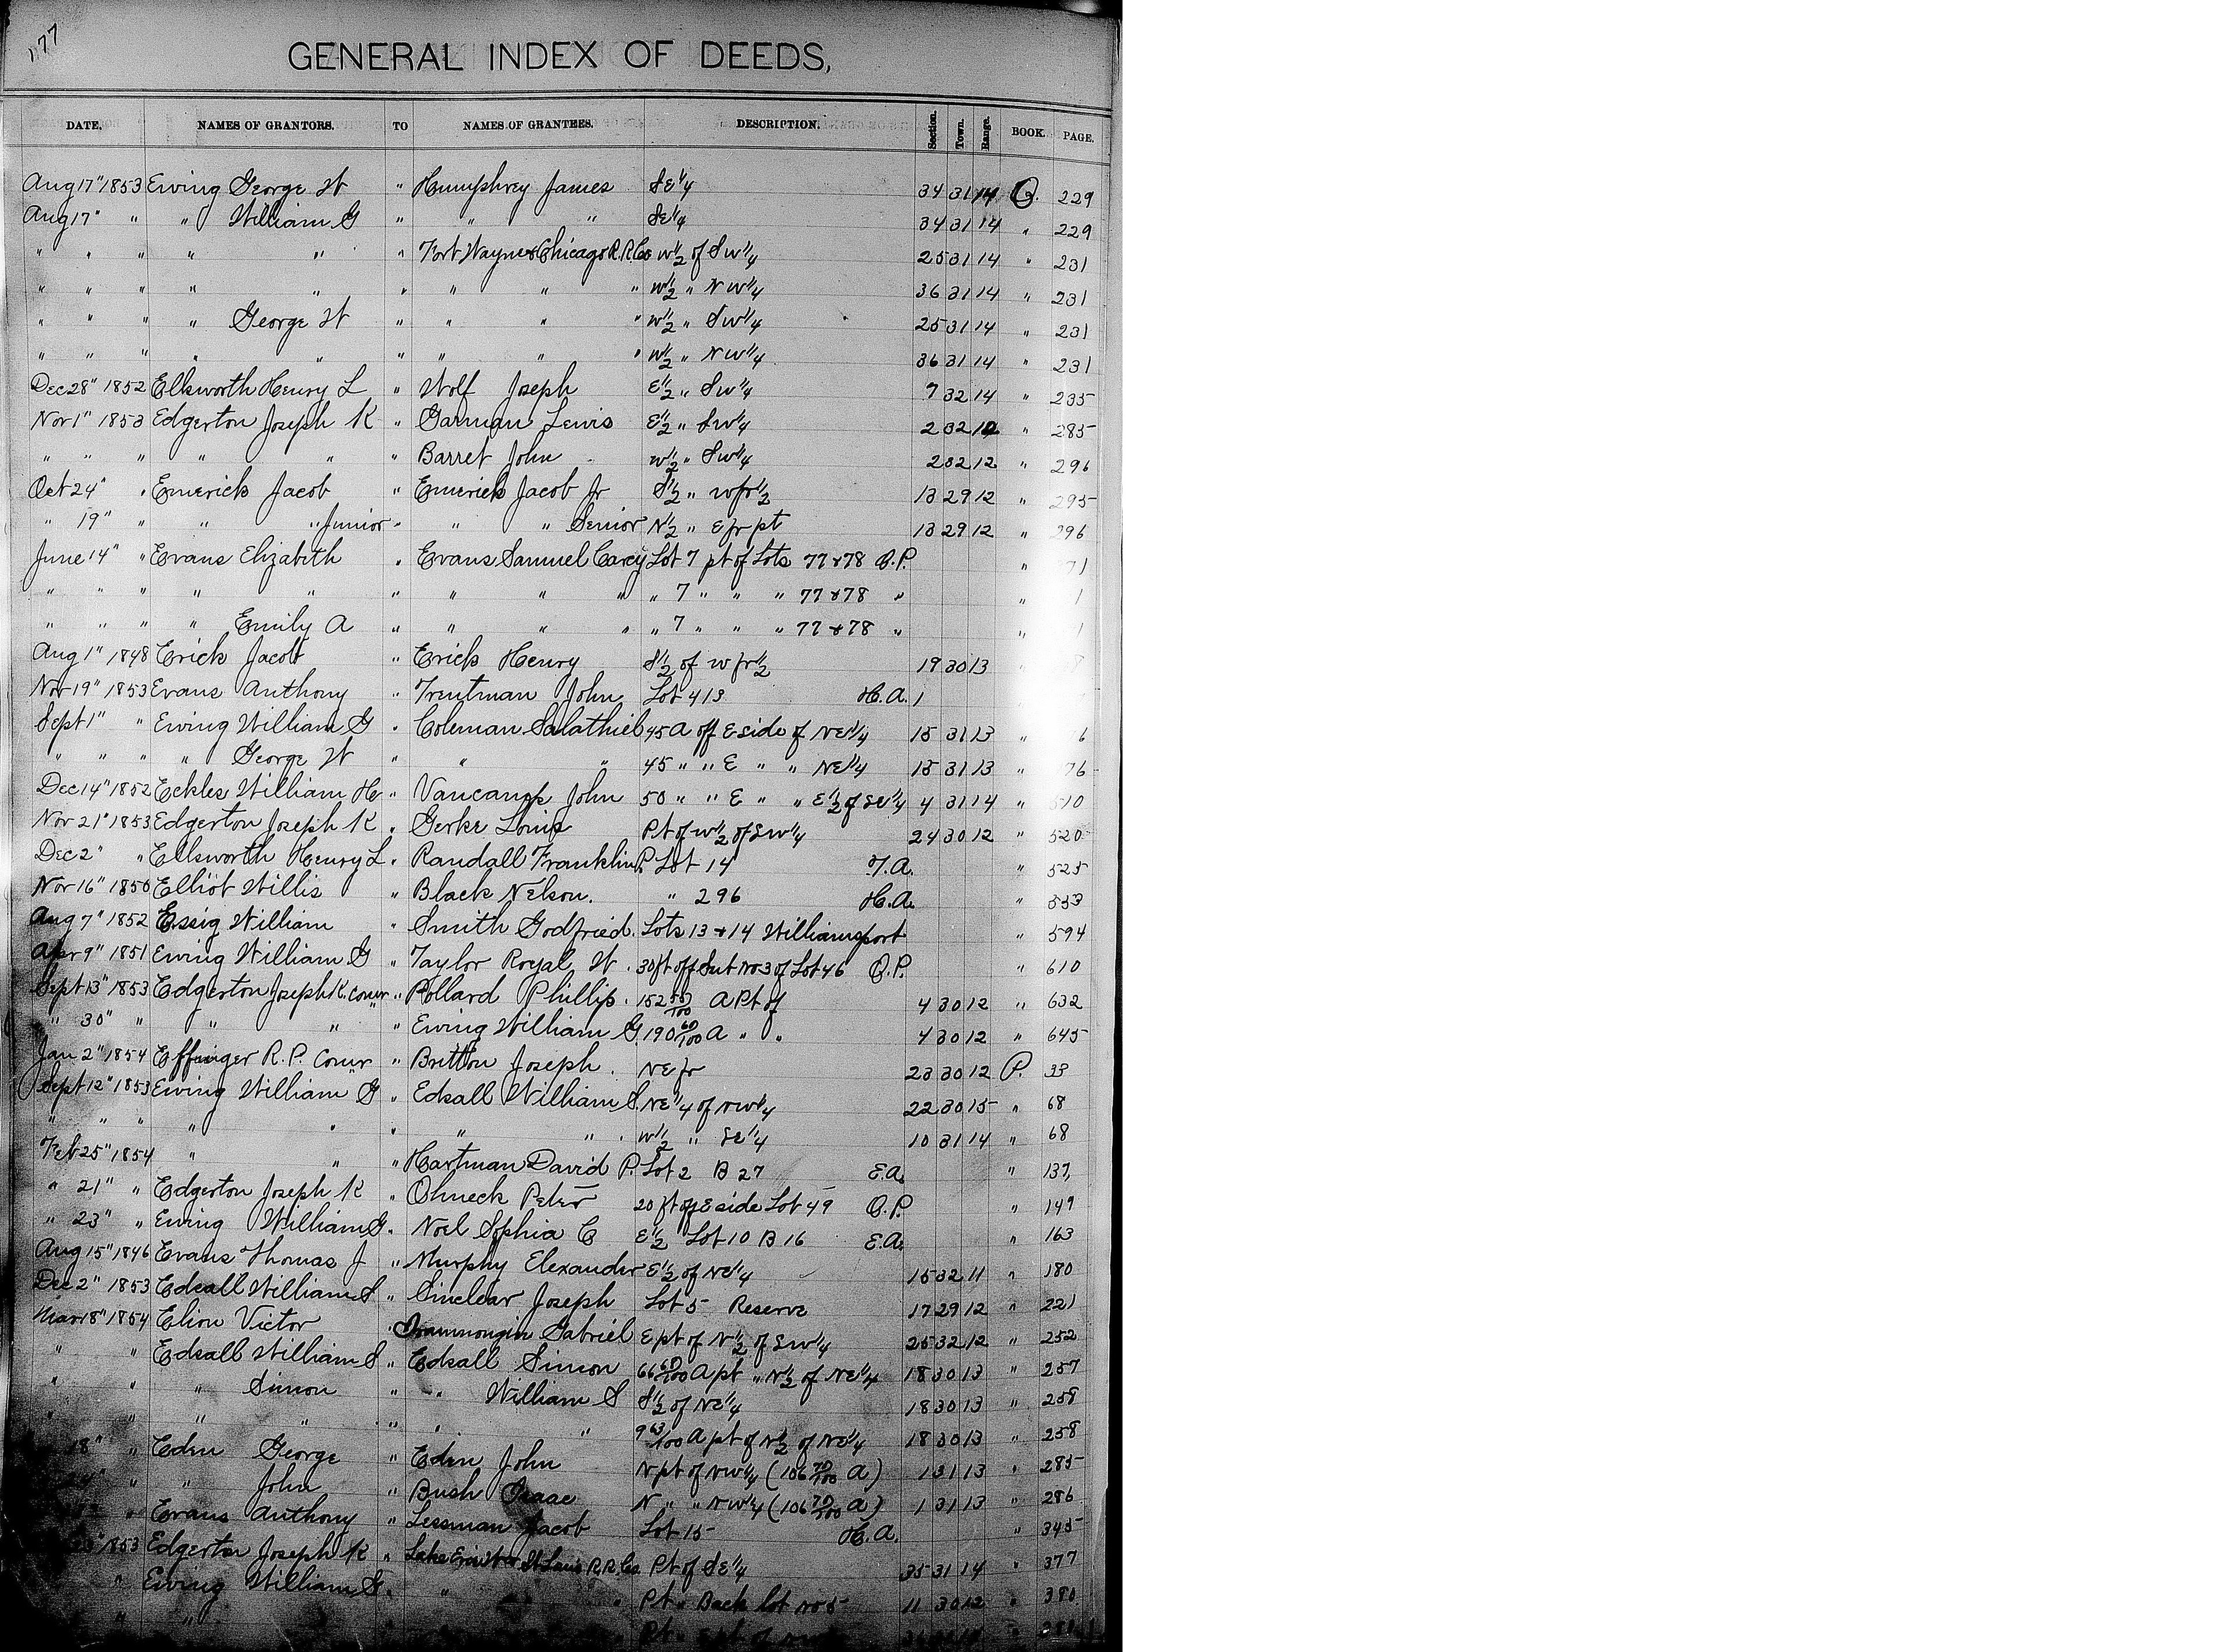 177
GENERAL INDEX OF DEEDS,
DATE. NAMES OF GRANTORS. TO NAMES OF GRANTEES. DESCRIPTION. Section. Town. Range. BOOK. PAGE.
Aug 17" 1853 Ewing George W " Humphrey James SE 1/4 34 31 14 O. 229
Aug 17" " " William G " " " SE 1/4 34 31 14 " 229
" " " " " " Fort Wayne & Chicago R.R. Co W 1/2 of SW 1/4 25 31 14 " 231
" " " " " " " " " W 1/2 " NW 1/4 36 31 14 " 231
" " " " George W " " " " W 1/2 " SW 1/4 25 31 14 " 231
" " " " " " " " " W 1/2 " NW 1/4 36 31 14 " 231
Dec 28" 1852 Ellsworth Henry L " Wolf Joseph E 1/2 " SW 1/4 7 32 14 " 235
Nov 1" 1853 Edgerton Joseph K " Garman Lewis E 1/2 " SW 1/4 2 32 12 " 285
" " " " " " Barret John W 1/2 " SW 1/4 2 32 12 " 296
Oct 24" " Emerick Jacob " Emerick Jacob Jr S 1/2 " W fr 1/2 13 29 12 " 295
" 19" " " " Junior " " " Senior N 1/2 " E fr pt 13 29 12 " 296
June 14" " Evans Elizabeth " Evans Samuel Carey Lot 7 pt of Lots 77 & 78 O.P. " 71
" " " " " " " " " " 7 " " " 77 & 78 " " 1
" " " " Emily A " " " " " 7 " " " 77 & 78 " " 1
Aug 1" 1848 Erick Jacob " Erick Henry S 1/2 of W fr 1/2 19 30 13 " 8
Nov 19" 1853 Evans Anthony " Trentman John Lot 413 H.A.
Sept 1" " Ewing William G " Coleman Salathiel 45 A off E side of NE 1/4 15 31 13 " 6
" " " " George W " " " 45 " " E " " NE 1/4 15 31 13 " 76
Dec 14" 1852 Eckles William H " Vancamp John 50 " " E " " E 1/2 of SE 1/4 4 31 14 " 510
Nov 21" 1853 Edgerton Joseph K " Gerke Louis Pt of W 1/2 of SW 1/4 24 30 12 " 520
Dec 2" " Ellsworth Henry L " Randall Franklin P. Lot 14 T.A. " 525
Nov 16" 1850 Elliot Willis " Black Nelson. " 296 H.A. " 533
Aug 7" 1852 Essig William " Smith Godfried. Lots 13 & 14 Williamsport " 594
Apr 9" 1851 Ewing William G " Taylor Royal W. 30 ft off Sub No 3 of Lot 46 O.P. " 610
Sept 13" 1853 Edgerton Joseph K. Comr " Pollard Phillip. 152 A Pt of 4 30 12 " 632
" 30" " " " " Ewing William G. 190 60/100 A " " 4 30 12 " 645
Jan 2" 1854 Effinger R.P. Comr " Britton Joseph. NE fr 23 30 12 P. 33
Sept 12" 1853 Ewing William G " Edsall William S. NE 1/4 of NW 1/4 22 30 15 " 68
" " " " " " " " W 1/2 " SE 1/4 10 31 14 " 68
Feb 25" 1854 " " " Hartman David P. Lot 2 B 27 E.A. " 137,
" 21" " Edgerton Joseph K " Ohneck Peter 20 ft off E side Lot 49 O.P. " 149
" 23" " Ewing William G. Noel Sophia C E 1/2 Lot 10 B 16 E.A. " 163
Aug 15" 1846 Evans Thomas J " Murphy Elexander E 1/2 of NE 1/4 15 32 11 " 180
Dec 2" 1853 Edsall William S " Sinclear Joseph Lot 5 Reserve 17 29 12 " 221
Mar 18" 1854 Elion Victor " Gabriel E pt of N 1/2 of SW 1/4 25 32 12 " 252
" " Edsall William S " Edsall Simon 66 60/100 A pt " N 1/2 of NE 1/4 18 30 13 " 257
" " " Simon " " William S S 1/2 of NE 1/4 18 30 13 " 258
" " " " " " 9 63/100 A pt of N 1/2 of NE 1/4 18 30 13 " 258
18" " Eden George " Eden John N pt of NW 1/4 (106 70/100 A) 1 31 13 " 285
" " John " Bush Isaac N " " NW 1/4 (106 70/100 A) 1 31 13 " 286
" Evans Anthony " Lessman Jacob Lot 15 H.A. " 345
1853 Edgerton Joseph K " Lake Erie St Louis R.R. Co. Pt of SE 1/4 35 31 14 " 377
" Ewing William G. " " Pt " Back lot No 5 11 30 12 " 380
" " " Pt " E pt of